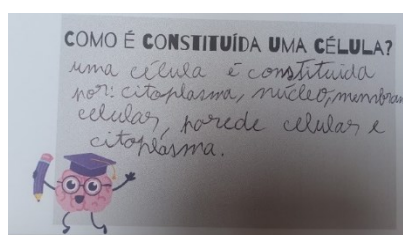 COMO É CONSTITUÍDA UMA CÉLULA?
uma célula é constituida
por: citoplasma, núcleo, membran
celular, parede celular e
citoplásma.